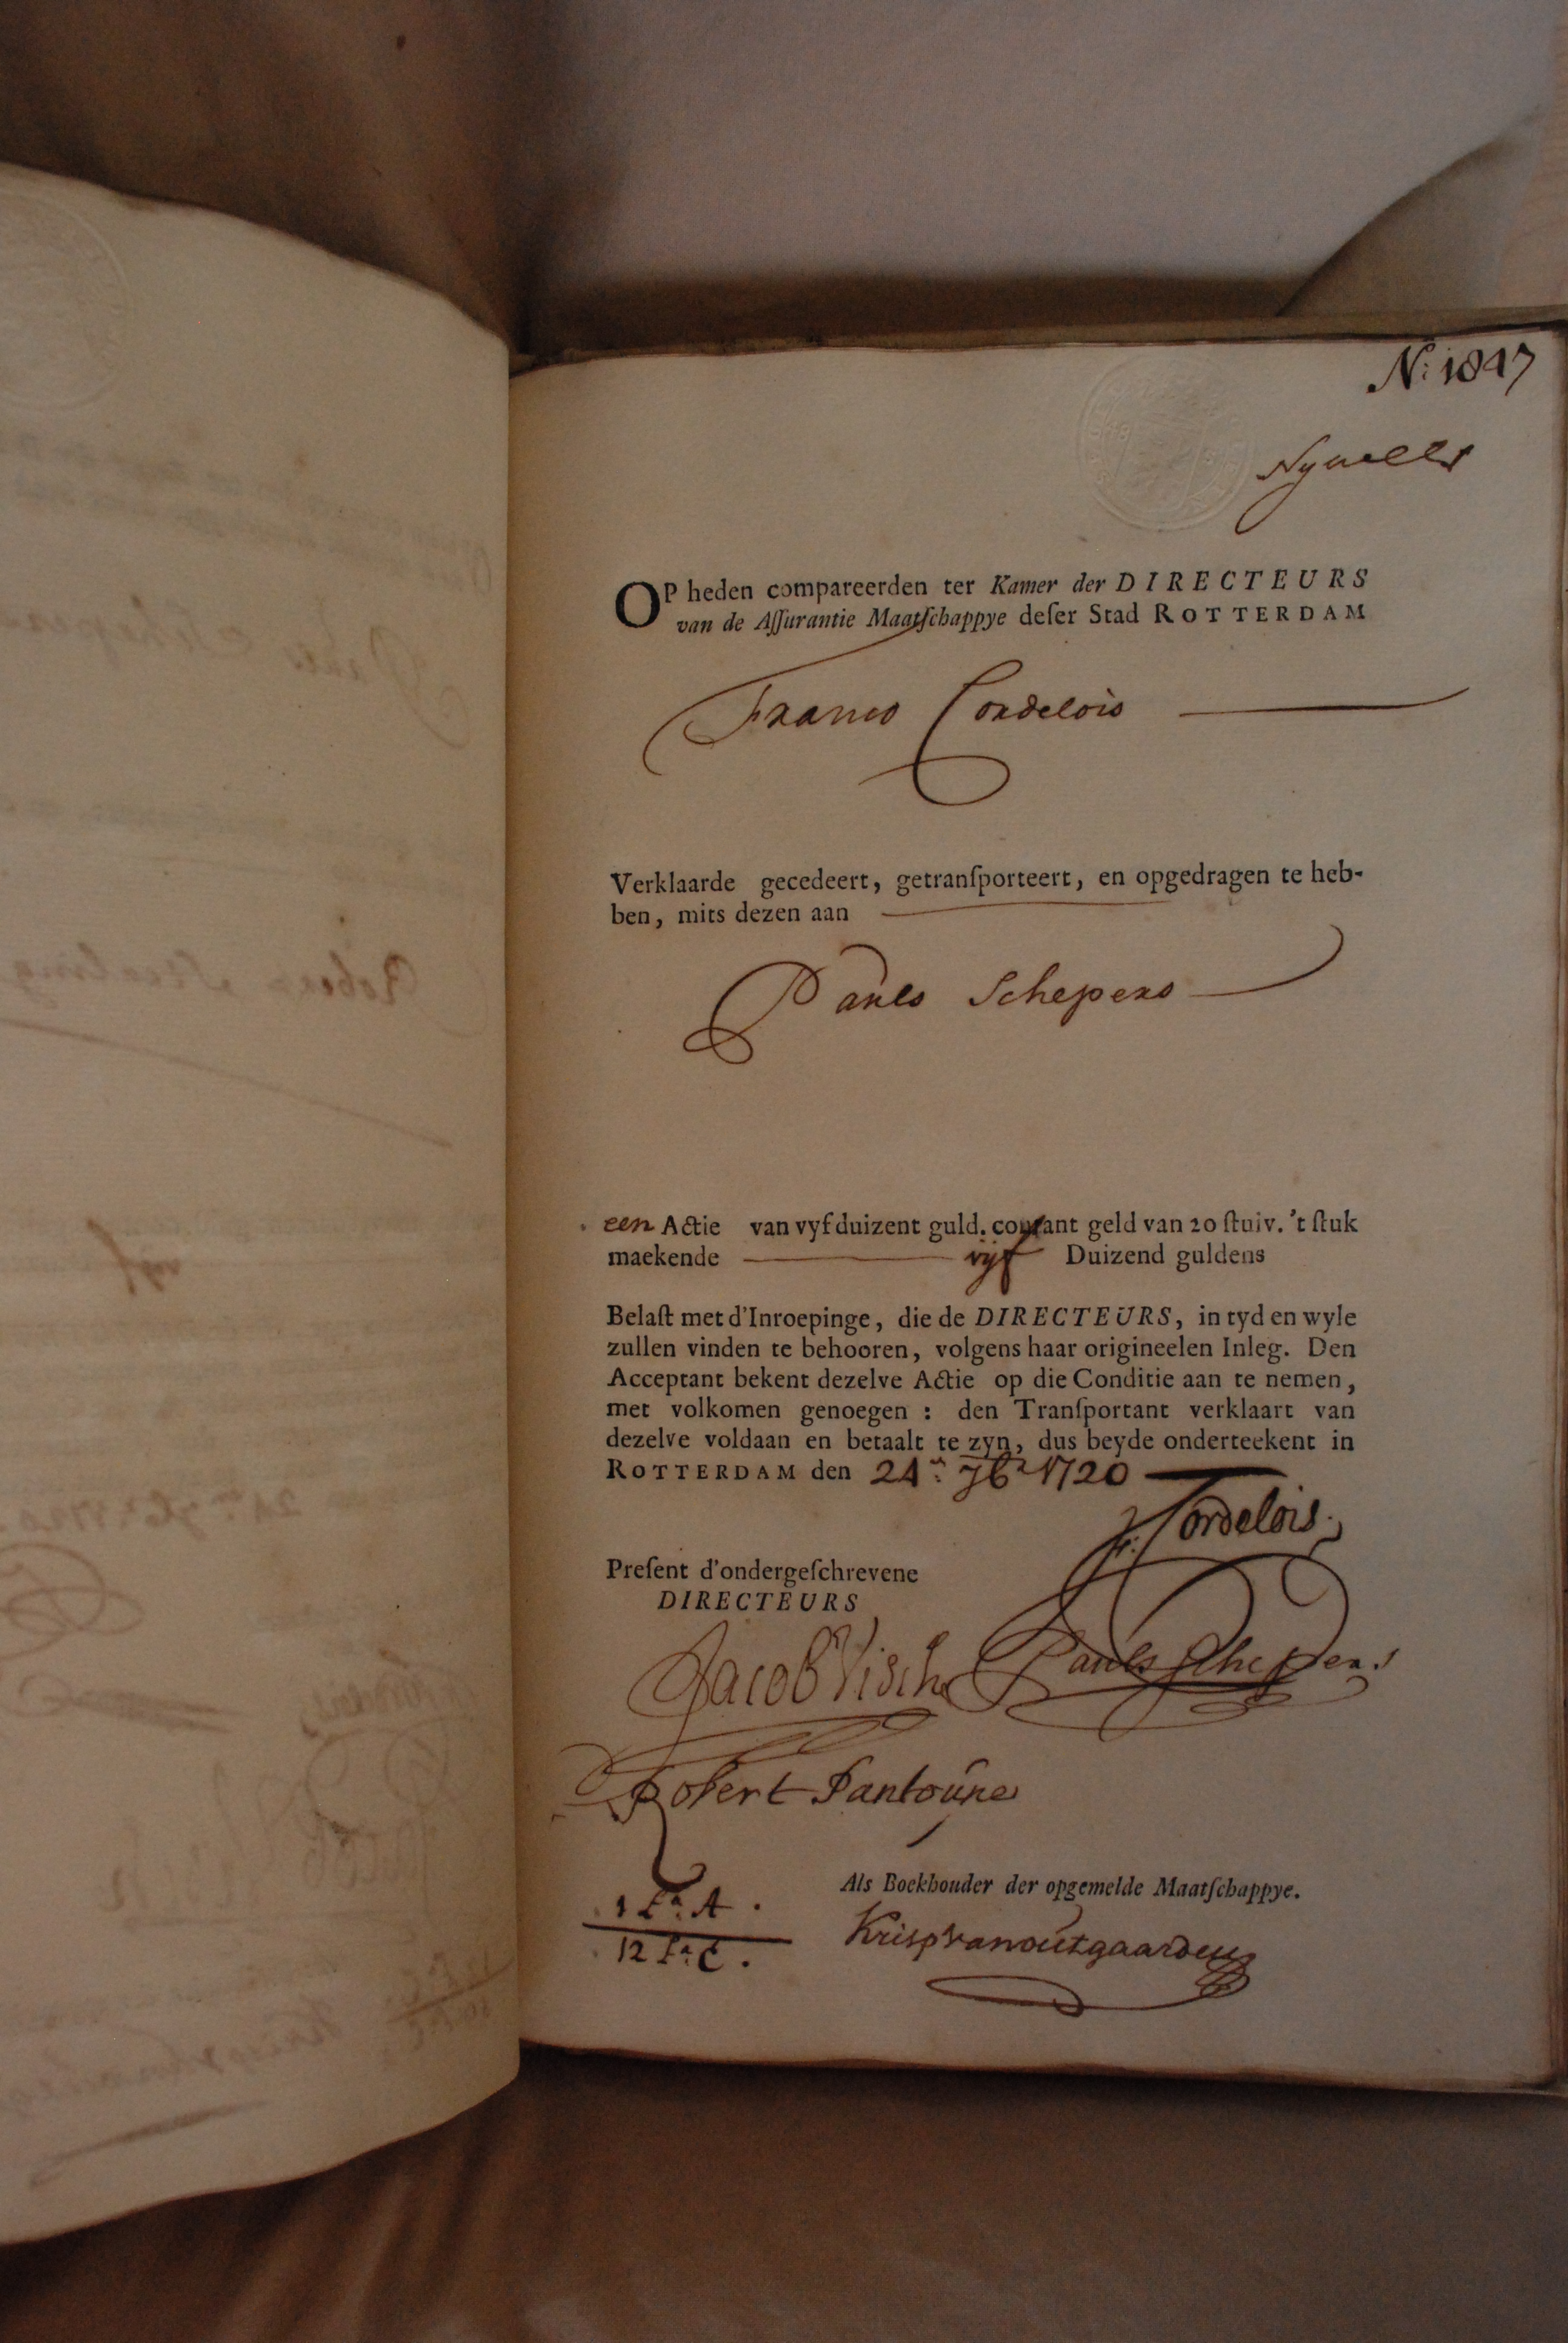 N: 1847
OP heden compareerden ter Kamer der DIRECTEURS
van de Aſſurantie Maatſchappye deſer Stad ROTTERDAM
Franco Cordelois
Verklaarde gecedeert, getranſporteert, en opgedragen te heb-
ben, mits dezen aan
Pauls Schepers
een Actie van vyf duizent guld. courant geld van 20 ſtuiv. 't ſtuk
maekende vijf Duizend guldens
Belaſt met d'Inroepinge, die de DIRECTEURS, in tyd en wyle
zullen vinden te behooren, volgens haar origineelen Inleg. Den
Acceptant bekent dezelve Actie op die Conditie aan te nemen,
met volkomen genoegen : den Tranſportant verklaart van
dezelve voldaan en betaalt te zyn, dus beyde onderteekent in
ROTTERDAM den 24:n 7br 1720
F: Cordelois.
Preſent d'ondergeſchrevene
DIRECTEURS
Jacob Visch Pauls Schepers
Robert
Als Boekhouder der opgemelde Maatſchappye.
1 La: A.
12 La: C.
Krisp van outgaarden